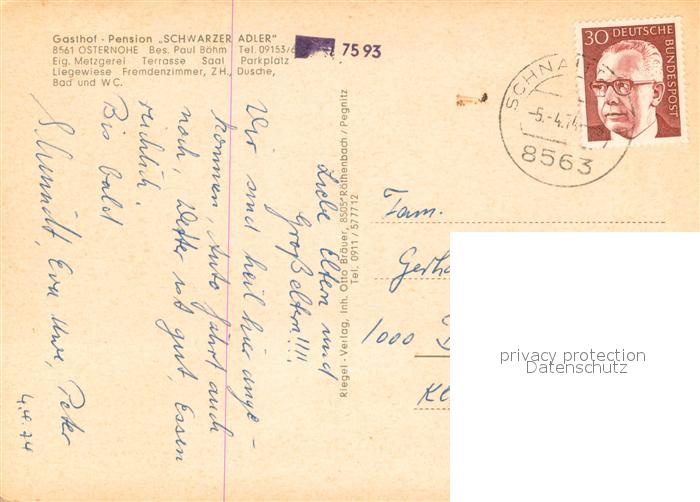 Gasthof - Pension „SCHWARZER ADLER"
8561 OSTERNOHE Bes. Paul Böhm Tel. 09153/6 7593
Eig. Metzgerei Terrasse Saal Parkplatz
Liegewiese Fremdenzimmer, ZH., Dusche,
Bad und WC.
Liebe Eltern und
Großeltern!!!!
Wir sind heil hier ange-
kommen, Auto fährt auch
noch, Wetter ist gut, Essen
reichlich.
Bis bald
Eva Uwe, Peter
4.4.74
Riegel-Verlag, Inh. Otto Bräuer, 8505 Röthenbach / Pegnitz
Tel. 0911 / 577712
30 DEUTSCHE
BUNDESPOST
SCHNA
-5.-4.74
8563
Fam.
Gerha
1000
Kl
privacy protection
Datenschutz